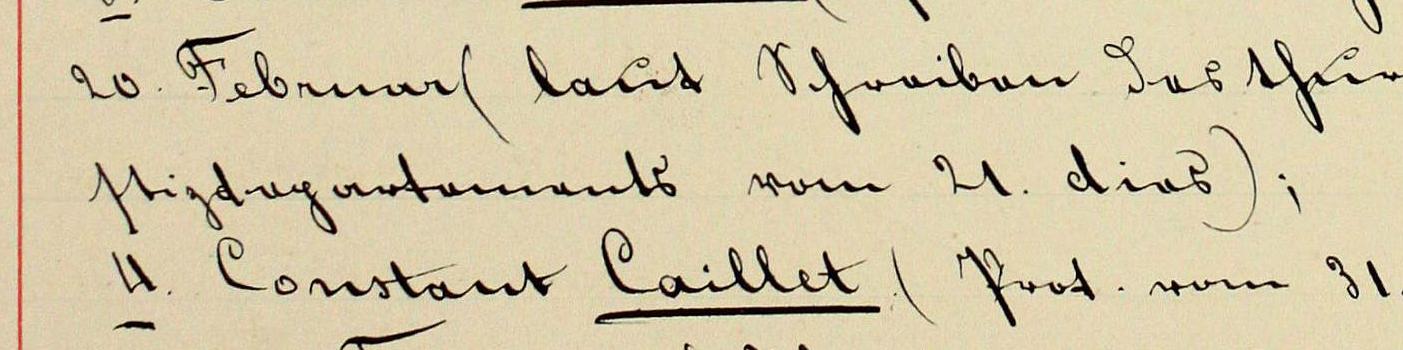 20. Februar (laut Schreiben des thur
stizdepartements vom 21. dies);
4. Constant Caillet (Prot. vom 31.